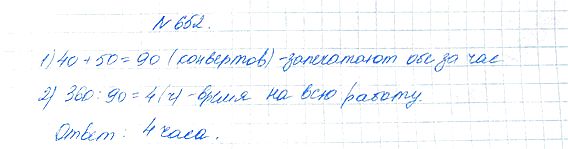 №652.
1) 40 + 50 = 90 (конвертов) - запечатают обе за час
2) 360 : 90 = 4 (ч) - время на всю работу.
Ответ: 4 часа.